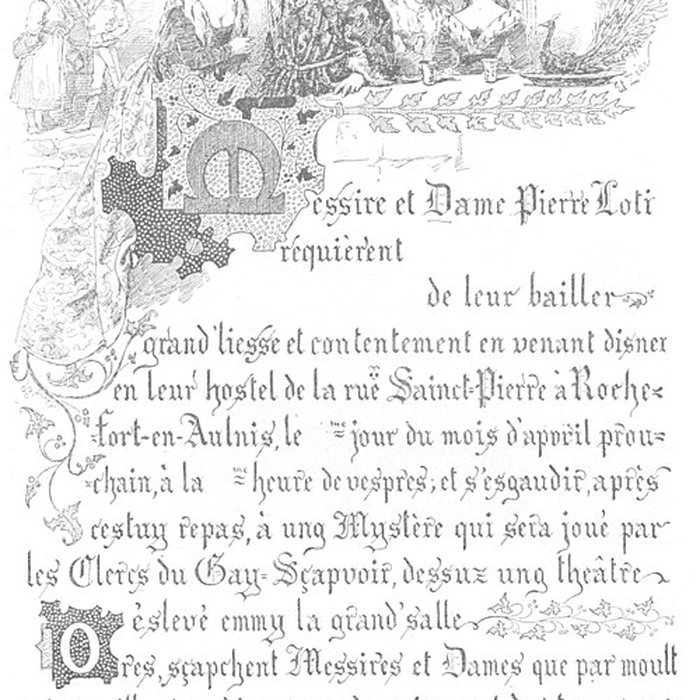 Messire et Dame Pierre Loti
réquièrent
de leur bailler
grand'liesse et contentement en venant disner
en leur hostel de la rue Sainct-Pierre à Roche-
-fort-en-Aulnis, le me jour du mois d'apvril prou-
-chain, à la me heure de vespres; et s'esgaudir, après
cestuy repas, à ung Mystère qui sera joué par
les Clercs du Gay-Sçapvoir, dessuz ung théâtre
èslevé emmy la grand'salle
Ores, sçapchent Messires et Dames que par moult